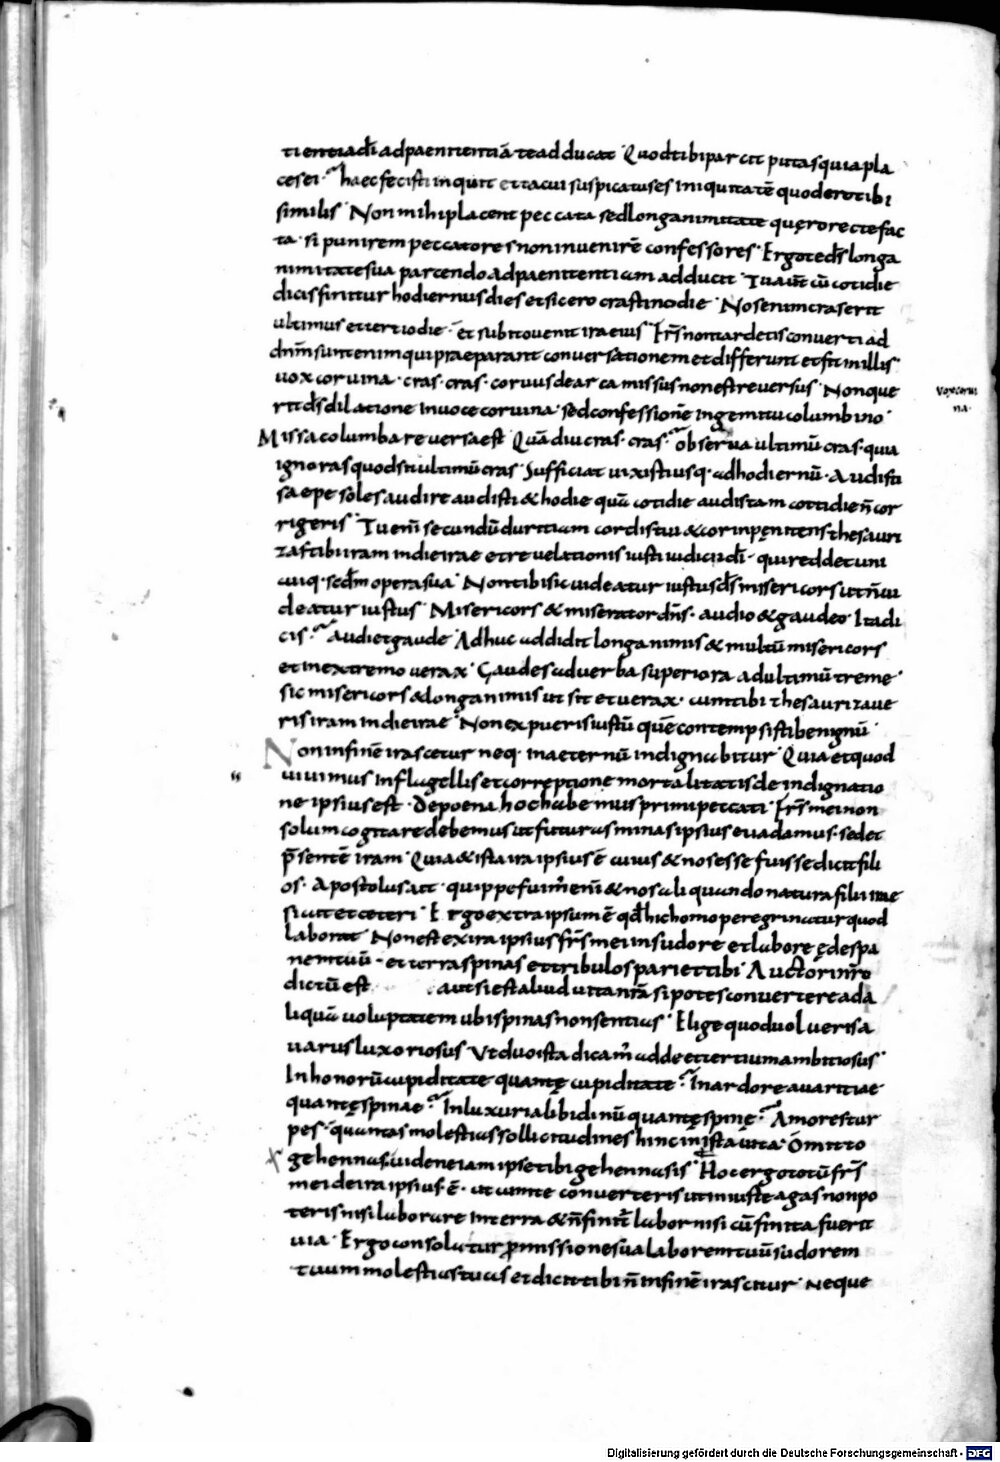 tientia dī ad paenitentiā te adducat· Quod tibi parcit putas quia pla
ces ei· haec fecisti inquit et tacui suspicatus es iniquitatē quod ero tibi
similis· Non mihi placent peccata sed longanimitate quęro recte fac
ta· si punirem peccatores non invenirē confessores· Ergo te ds̄ longa
nimitate sua parcendo ad paenitentiam adducit· Tu aut̄ cū cotidie
dicis finitur hodiernus dies et sic ero crastino die· Nos enim cras erit
ultimus et tertio die· et subito venit ira eius· Fr̄s non tardetis converti ad
dn̄m sunt enim qui praeparant conversationem et differunt et fit in illis·
vox corvina· cras· cras· corvus de arca missus non est reversus· Non que
rit ds̄ dilatione in voce corvina· sed confessionē in gemitu columbino·
Vox corvi
na·
Missa columba reversa est· Quā diu cras· cras· observa ultimū cras· quia
ignoras quod sit ultimū cras· Sufficiat vixisti usq· ad hodiernū· Audisti
saepe soles audire audisti & hodie quā cotidie audis tam cottidie n̄ cor
rigeris· Tu enī secundū duritiam cordis tui & cor inpęnitens thesauri
zas tibi iram in die irae et revelationis iusti iudicii dī· qui reddet uni
cuiq· sedm̄ opera sua· Non tibi sic videatur iustus ds̄ misericors ut n̄ vi
deatur iustus· Misericors & miserator dn̄s· audio & gaudeo· Ita di
cis· audi et gaude· Adhuc addidit longanimis & multū misericors
et in extremo verax· Gaudes ad verba superiora ad ultimū treme·
sic misericors & longanimis ut sit et verax· cum tibi thesaurizave
ris iram in die irae· Non experieris iustū quē contempsisti benignū·
Non in finē irascetur neq· in aeternū indignabitur· Quia et quod
vivimus in flagellis et correptione mortalitatis de indignatio
ne ipsius est· De poena hoc habemus primi peccati· Fr̄s mei non
solum cogitare debemus ut futuras minas ipsius evadamus· sed et
p̄sentē iram· Quia & ista ira ipsius ē cuius & nos esse fuisse dicit fili
os· Apostolus ait· quippe fuim̄ enī & nos aliquando natura filii irae
sicut et ceteri· Ergo ex tra ipsum ē qđ hic homo peregrinatur quod
laborat· Non est ex ira ipsius fr̄s mei in sudore et labore ędes pa
nem tuū· et terra spinas et tribulos pariet tibi· Auctori nr̄o
dictū est aut si est aliud vita nr̄a si potes convertere ad a
liquā voluptatem ubi spinas non sentias· Elige quod volueris a
varus luxoriosus· Ut duo ista dicam̄ adde et tertium ambitiosus·
In honorū cupiditate quantę cupiditate· In ardore avaritiae
quantę spinae· In luxuria libidinū quantę spinę· Amores tur
pes· quantas molestias sollicitudines hinc in ista vita· Omitto
gehennas· vide ne iam ipse tibi gehenna sis· Hoc ergo totū fr̄s
mei de ira ipsius· ē· ut cum te converteris ut in iuste agas non po
teris nisi laborare in terra & n̄ finit̄ labor nisi cū finita fuerit
via· Ergo consolatur p̄missione sua laborem tuū sudorem
tuum molestias tuas et dicit tibi n̄ in finē irascitur· Neque
Digitalisierung gefördert durch die Deutsche Forschungsgemeinschaft - DFG